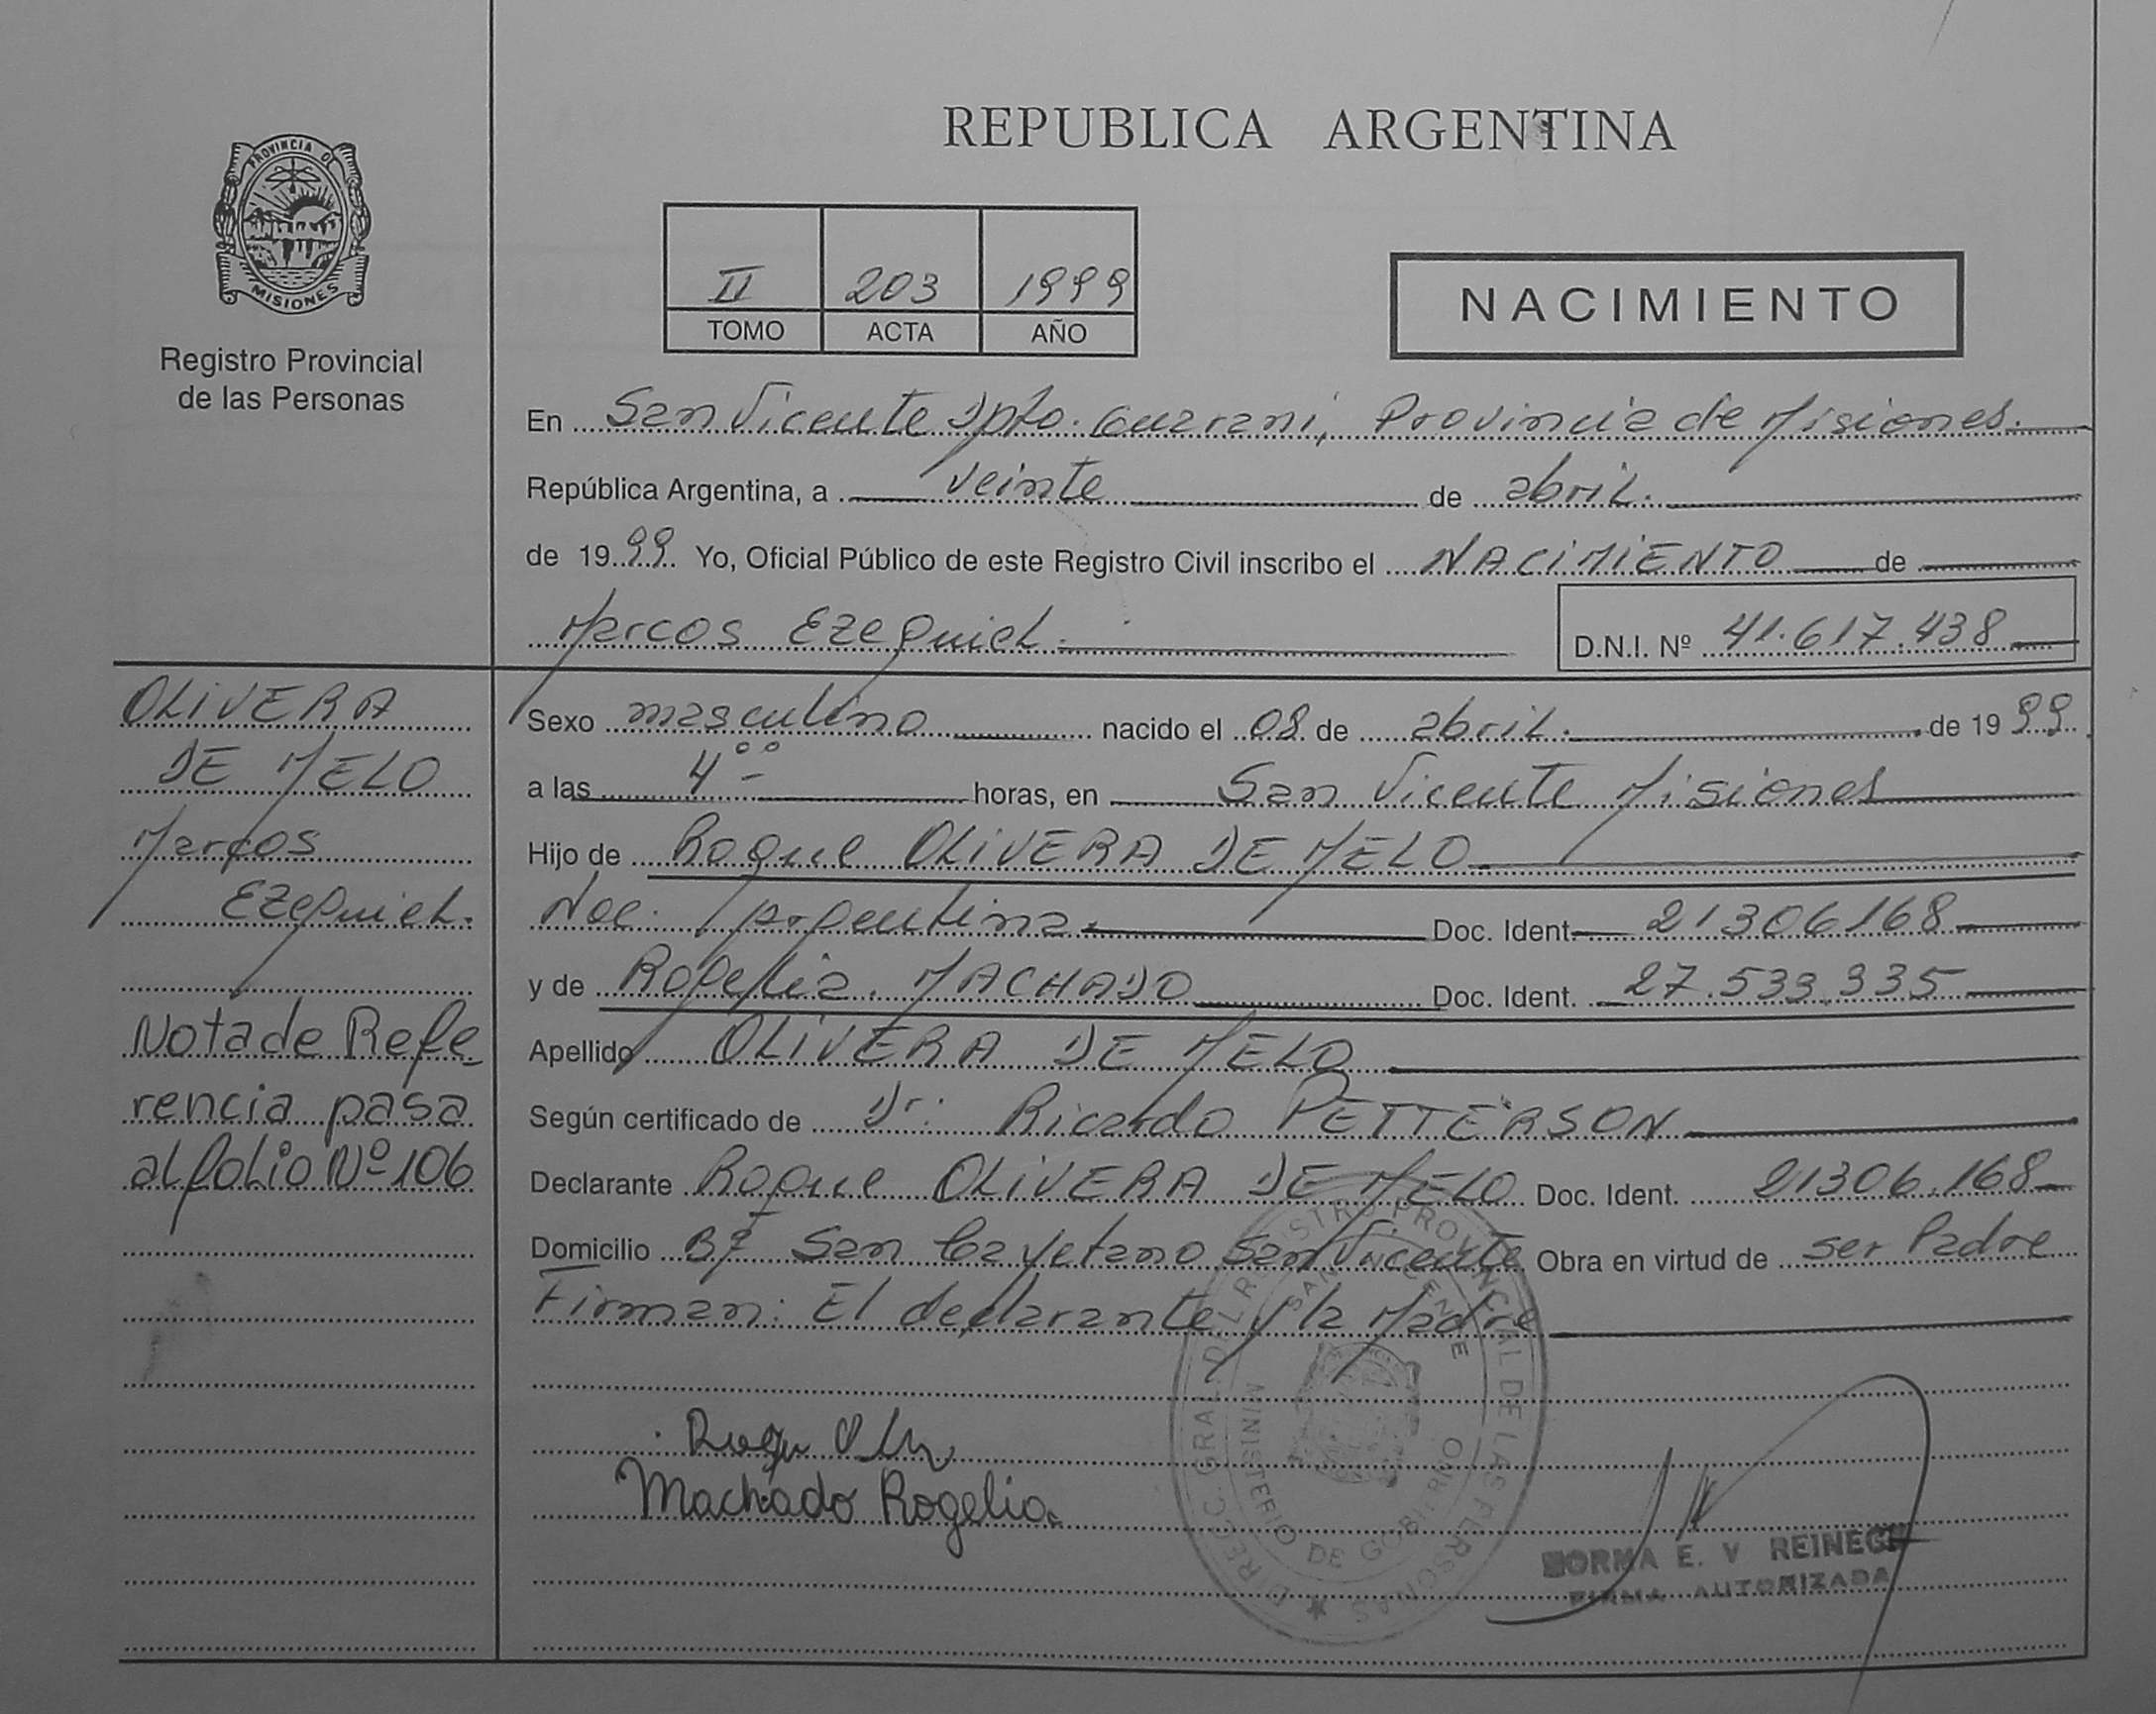 REPUBLICA ARGENTINA
PROVINCIA DE
MISIONES
Registro Provincial
de las Personas
II 203 1999
TOMO ACTA AÑO
NACIMIENTO
En San Vicente Dpto. Guarani, Provincia de Misiones.
República Argentina, a veinte de abril.
de 1999 Yo, Oficial Público de este Registro Civil inscribo el NACIMIENTO de
Marcos Ezequiel. D.N.I. Nº 41.617.438
OLIVERA
DE MELO
Marcos
Ezequiel.
Nota de Refe-
rencia pasa
al folio Nº 106
Sexo masculino nacido el 08 de abril. de 1999
a las 4°° horas, en San Vicente Misiones
Hijo de Roque OLIVERA DE MELO
Nac. Argentina. Doc. Ident. 21306168
y de Rogelia. MACHADO Doc. Ident. 27.533.335
Apellido OLIVERA DE MELO
Según certificado de Dr. Ricardo PETTERSON
Declarante Roque OLIVERA DE MELO Doc. Ident. 21306.168
Domicilio Bº San Cayetano San Vicente Obra en virtud de ser Padre
Firman: El declarante y la Madre
Machado Rogelia
DIRECC. GRAL. DEL REGISTRO PROVINCIAL DE LAS PERSONAS
SAN VICENTE
MINISTERIO DE GOBIERNO
NORMA E. V REINECH
FIRMA AUTORIZADA